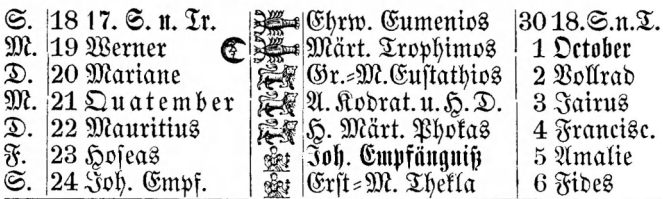 S. 18 17. S. n. Tr. Ehrw. Eumenios 30 18.S.n.T.
M. 19 Werner Märt. Trophimos 1 October
D. 20 Mariane Gr.=M.Eustathios 2 Vollrad
M. 21 Quatember A. Kodrat. u. H. D. 3 Jairus
D. 22 Mauritius H. Märt. Phokas 4 Francisc.
F. 23 Hoseas Joh. Empfängniß 5 Amalie
S. 24 Joh. Empf. Erst=M. Thekla 6 Fides